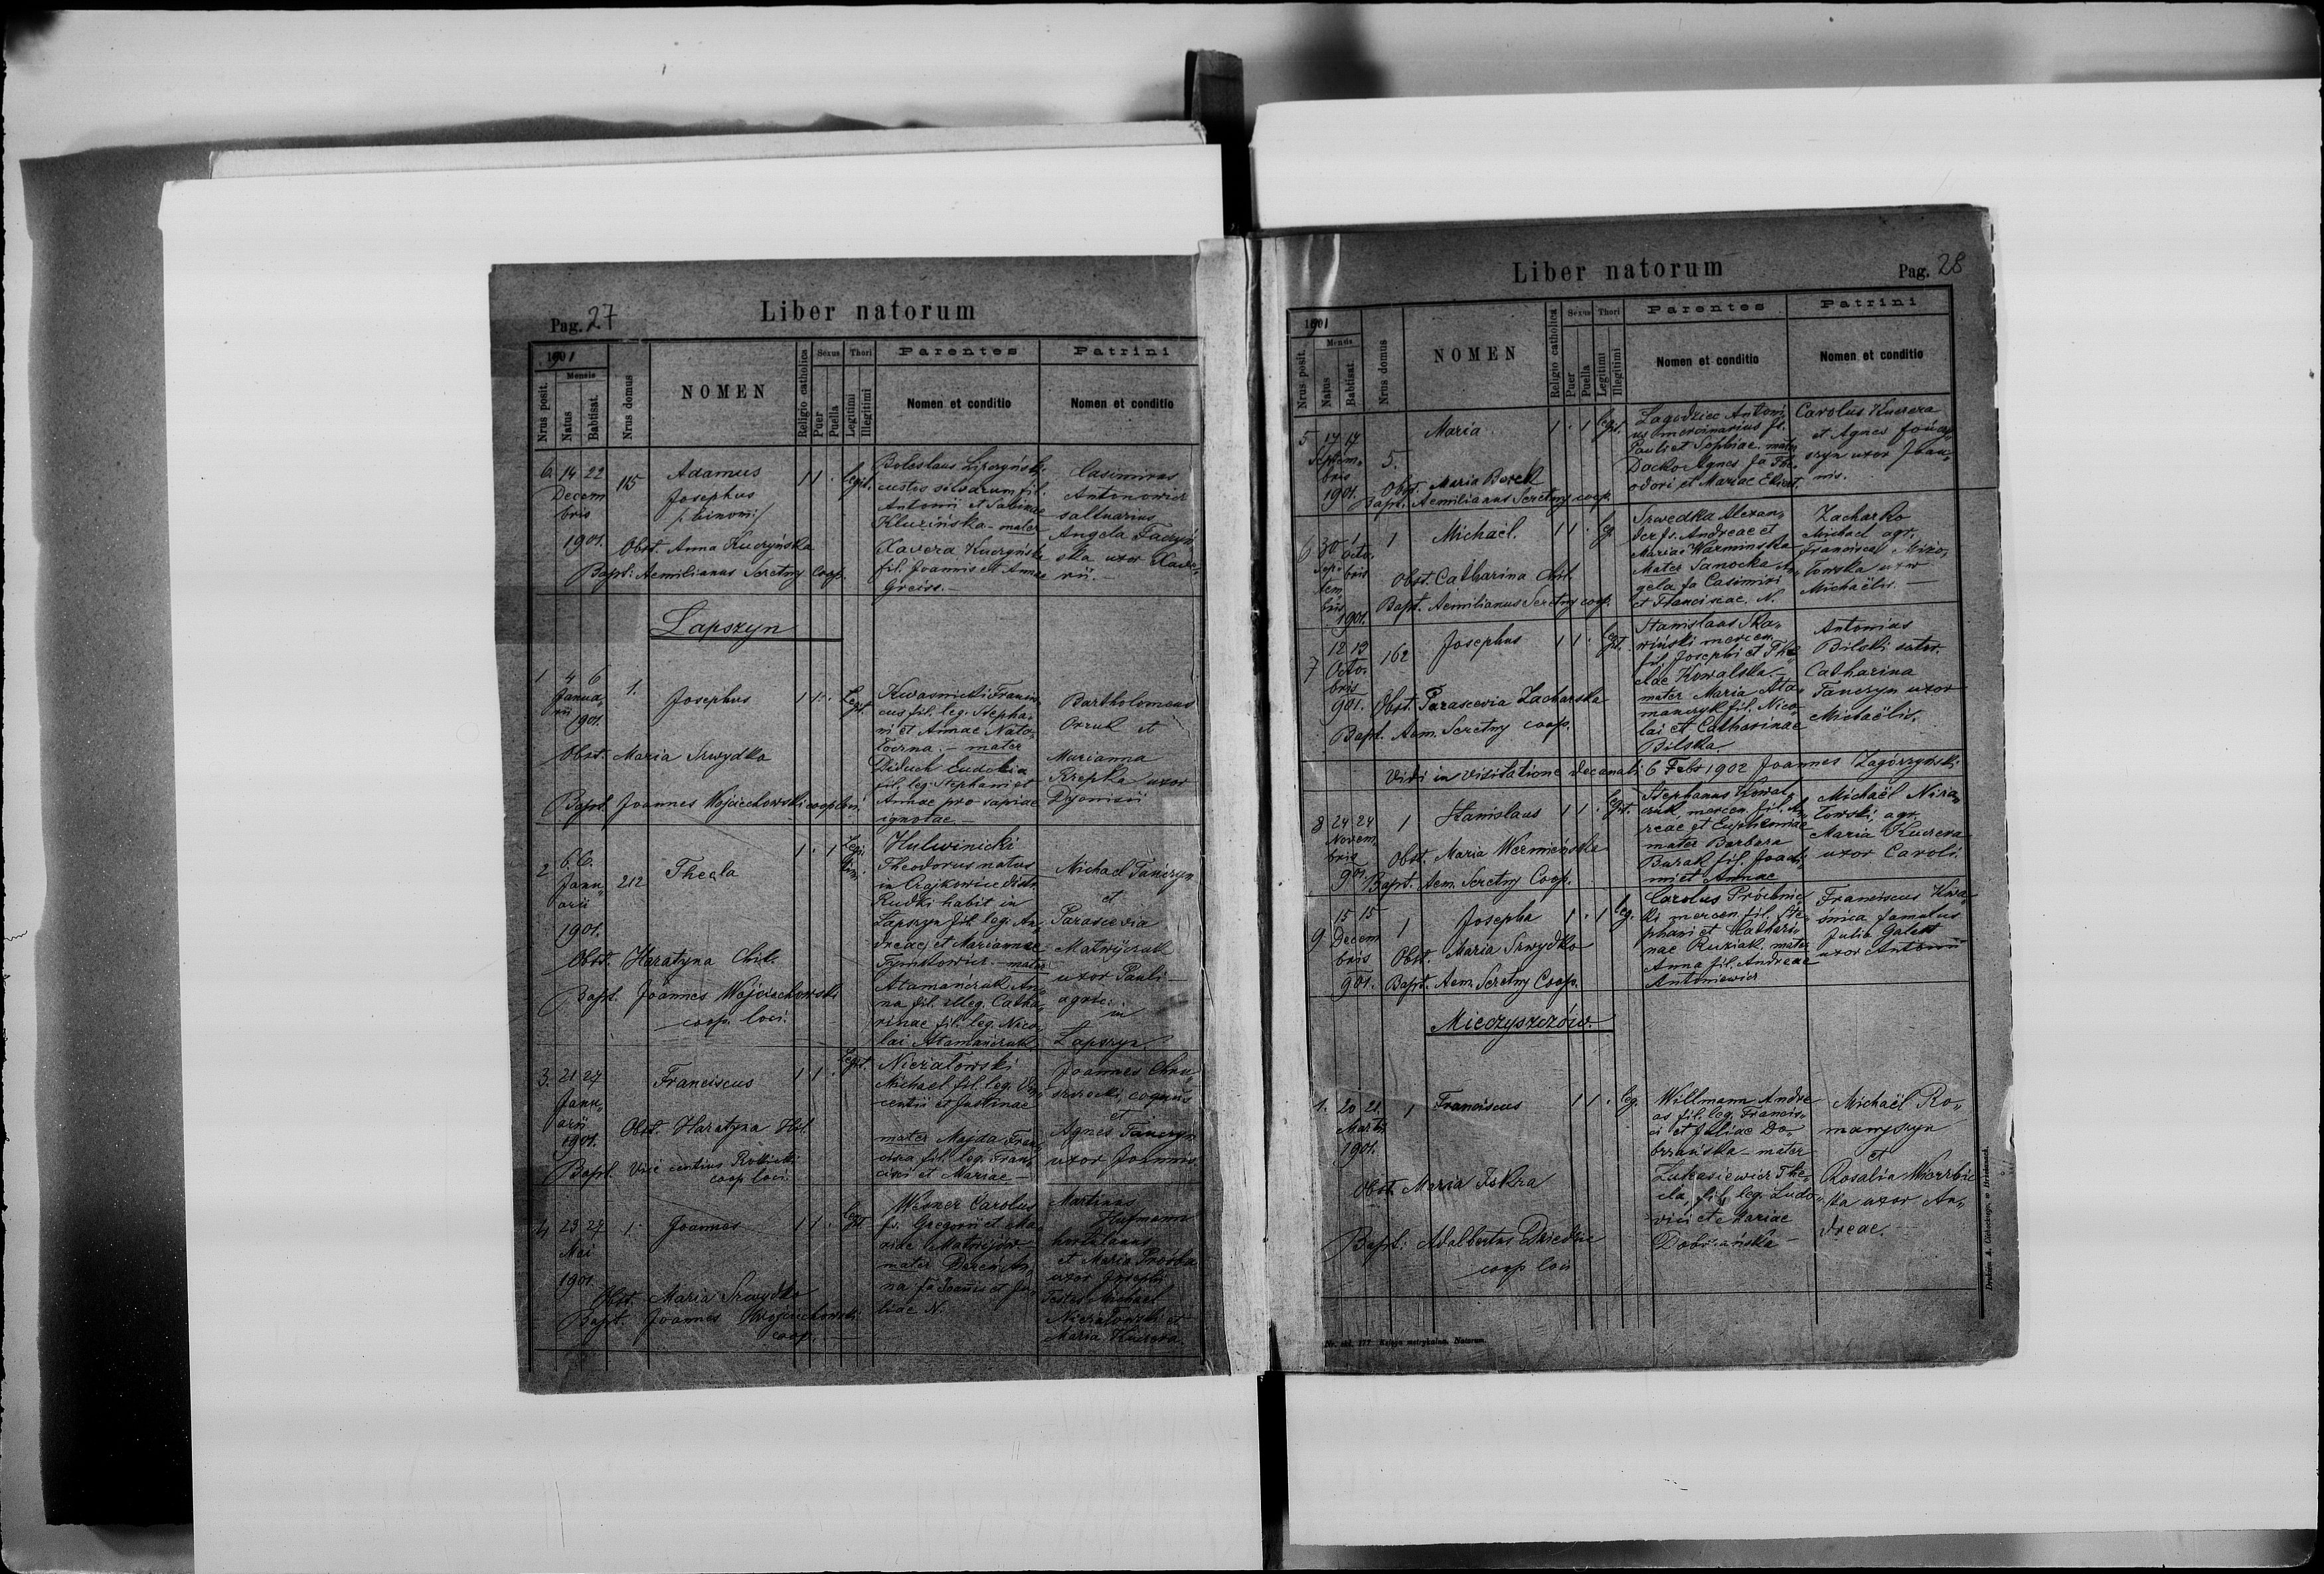 Pag. 27
Liber natorum
1901
Nrus posit.
Mensis
Natus
Babtisat.
Nrus domus
NOMEN
Religio catholica
Sexus
Puer
Puella
Thori
Legitimi
Illegitimi
Parentes
Nomen et conditio
Patrini
Nomen et conditio
6. 14 22
Decem
bris
1901.
115
Adamus
Josephus
/binomi/
1 1 . legit.
Obst. Anna Kuczyńska
Bapt. Aemilianus Seretny Coop.
Boleslaus
custos silvarum fil.
Antonii et Sabinae
Kluzińska - mater
Xavera Kuczyńska
fil. Joannis et Annae
Greiss.-
Casimirus
Antonowicz
saltuarius
Angela
ska uxor Xave„
rii. -
Lapszyn
1 4 6
Janua„
rii
1901
1.
Josephus
1 1 . Legit.
Obst. Maria Szwydka
Bapt. Joannes Wojciechowski coop loci
Kwasnicki Francis„
cus fil. leg. Stepha„
ni et Annae
mater
Diduch Eudokia
fil. leg. Stephani et
Annae pro sapiae
ignotae -
Bartholomeus
et
Marianna
Krepka uxor
Dyonisii
2 6. 6.
Janu„
arii
1901.
212
Thecla
1 . 1
Obst. Haratyna Chil.
Bapt. Joannes Wojciechowski
coop. loci.
Hulwinicki
Theodorus natus
in Czajkowice distr.
Rudki habit. in
Lapszyn fil. leg. An„
dreae et Mariannae
mater
Atamańczuk An„
na fil. illeg. Catha„
rinae fil. leg. Nico„
lai Atamańczuk
Michael Tańczyn
et
Parascevia
Matwijczuk
uxor Pauli
agric.
in
Lapszyn.
3. 21 27
Janu„
arii
1901.
Franciscus
1 1 . Legit.
Obst. Haratyna Hil.
Bapt. Vincentius
coop loci.
Niezatowski
Michael fil. leg. Vin„
centii et Justinae
mater Majda Fran„
cisca fil. leg. Fran„
cisci et Mariae -
Joannes
et
Agnes Tanczyn
uxor Joannis
4 23 27
Mai
1901
1.
Joannes
1 1 . legit
Obst. Maria Szwydka
Bapt. Joannes Wojciechowski
coop.
Werner Carolus
fs. Gregorii et Ma„
riae Matwijow
mater Deren An„
na fa Joannis et Ju„
liae N.
Martinus
Hufmann
hortulanus
et Maria
uxor Josephi
Testes Michael
Niezatowski et
Maria Kucera
Liber natorum
Pag. 28
1901
Nrus posit.
Mensis
Natus
Babtisat.
Nrus domus
NOMEN
Religio catholica
Sexus
Puer
Puella
Thori
Legitimi
Illegitimi
Parentes
Nomen et conditio
Patrini
Nomen et conditio
5 17 17
Septem„
bris
1901.
5.
Maria
1 . 1 legit.
Obst. Maria
Bapt. Aemilianus Seretny coop.
Lagodziec Antoni
us mercinarius fs.
Pauli et Sophiae mater
Dacko Agnes fa The„
odori et Mariae
Carolus Kucera
et Agnes
uxor Joan„
nis.
6 30 1
Sep„ Octo„
tem„ bris
bris
1901.
1
Michael.
1 1 . leg
Obst. Catharina Chil.
Bapt. Aemilianus Seretny coop.
Szwedka Alexan„
der fs. Andreae et
Mariae Warminska
Mater Sanocka An„
gela fa Casimiri
et Franciscae N.
Zacharko
Michael agr.
Francisca
uxor
Michaëlis. -
7 12 13
Octo„
bris
901.
162
Josephus
1 1 . legit.
Obst. Parascevia Zacharska
Bapt. Aem. Seretny coop.
Stanislaus Ska„
wiński mercen.
fil. Josephi et The„
clae Kowalska -
mater Maria Ata„
manczyk fil. Nico„
lai et Catharinae
Bilska.
Antonius
Bilski sutor.
Catharina
Tanczyn uxor
Michaëlis.
Vidi in visitatione decanali 6 Febr 1902 Joannes Zagórzyński
8 24 24
Novem„
bris
901.
1
Stanislaus
1 1 . legit.
Obst. Maria Werminska
Bapt. Aem. Seretny Coop.
Stephanus Kowal
czuk mercen. fil. An„
reae et Euphemiae
mater Barbara
Burak fil. Joach„
mi et Annae
Michaël Niza„
towski, agr.
Maria Kucera
uxor Caroli.
9 15 15
Decem
bris
901.
1
Josepha
1 . 1 leg.
Obst. Maria Szwydko
Bapt. Aem. Seretny Coop.
Carolus
ki mercen. fil. Ste„
phani et Cathari„
nae Ruziak. mater
Anna fil. Andreae
Antoniewicz
Franciscus Kwa„
śnica famulus
Julia
uxor Antonii
Mieczyszczów.
1. 20 21.
Martii
1901.
1
Franciscus
1 1 . leg.
Obst. Maria Iskra
Bapt. Adalbertus
coop loci
Willmann Andre
as fil. leg. Francis„
ci et Juliae Do„
brzańska - mater
Lukasiewicz The„
cla, fil. leg. Ludo„
vici et Mariae
Dobrzańska -
Michaël Ro„
manyszyn
et
Rosalia Wierzbic
ka uxor An„
dreae. -
Nr. skl. 177. Księga metrykalna. Natorum.